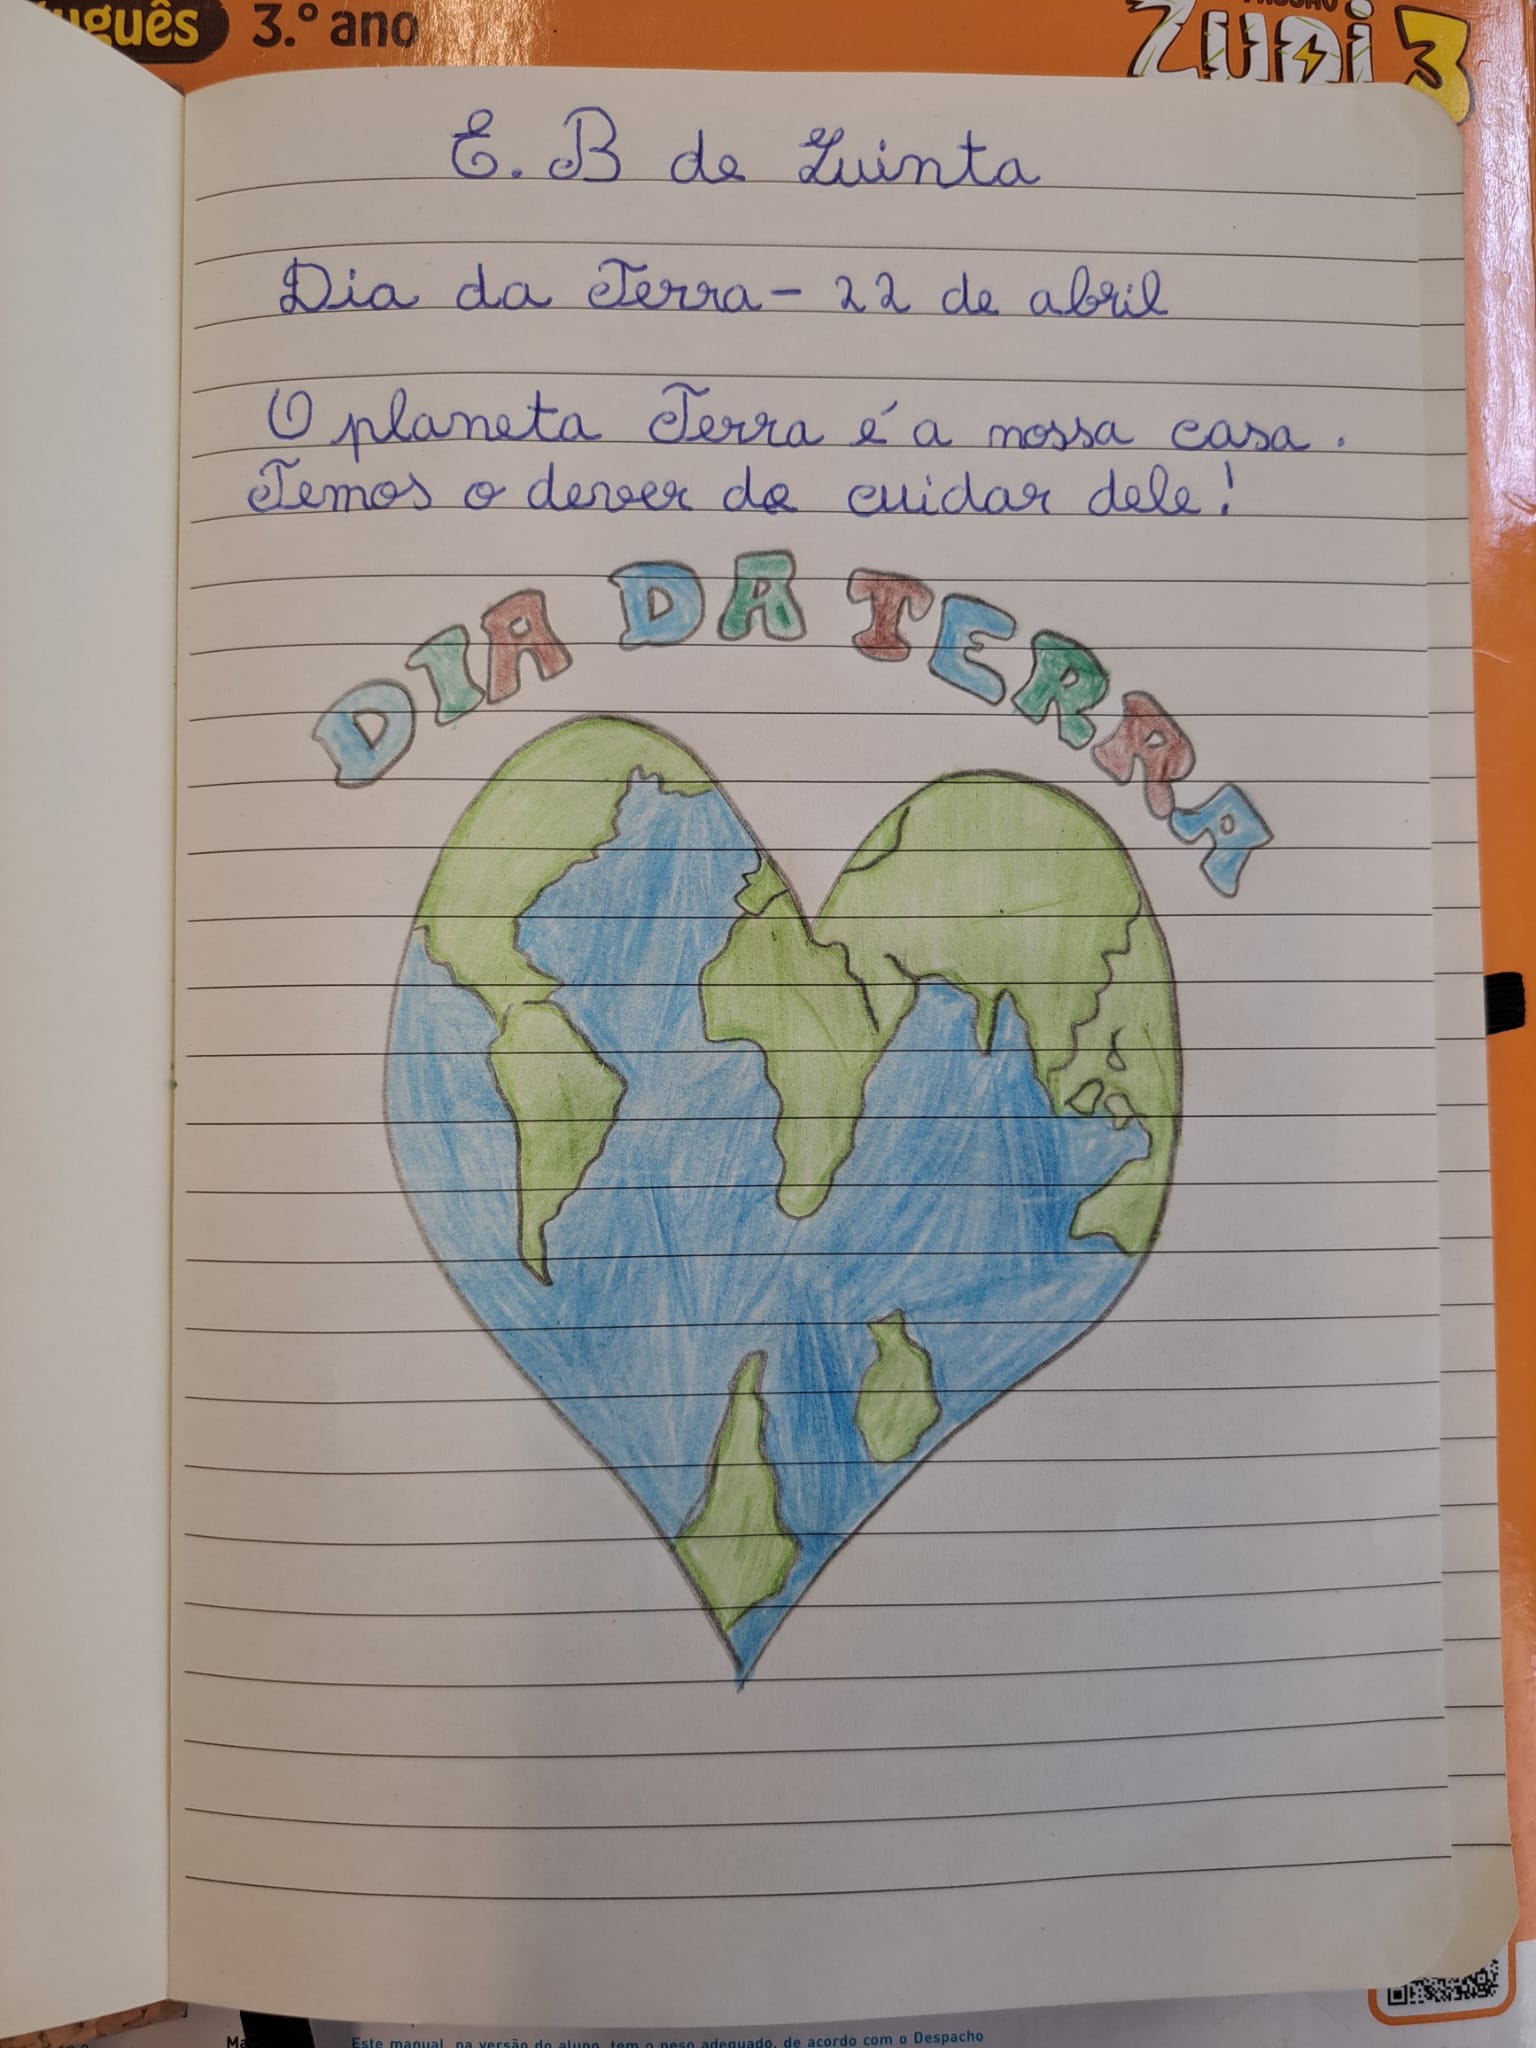 3.º ano
Zupi 3
E. B de Quinta
Dia da Terra - 22 de abril
O planeta Terra é a nossa casa.
Temos o dever de cuidar dele!
DIA DA TERRA
Este manual, na versão do aluno, tem o peso adequado, de acordo com o Despacho